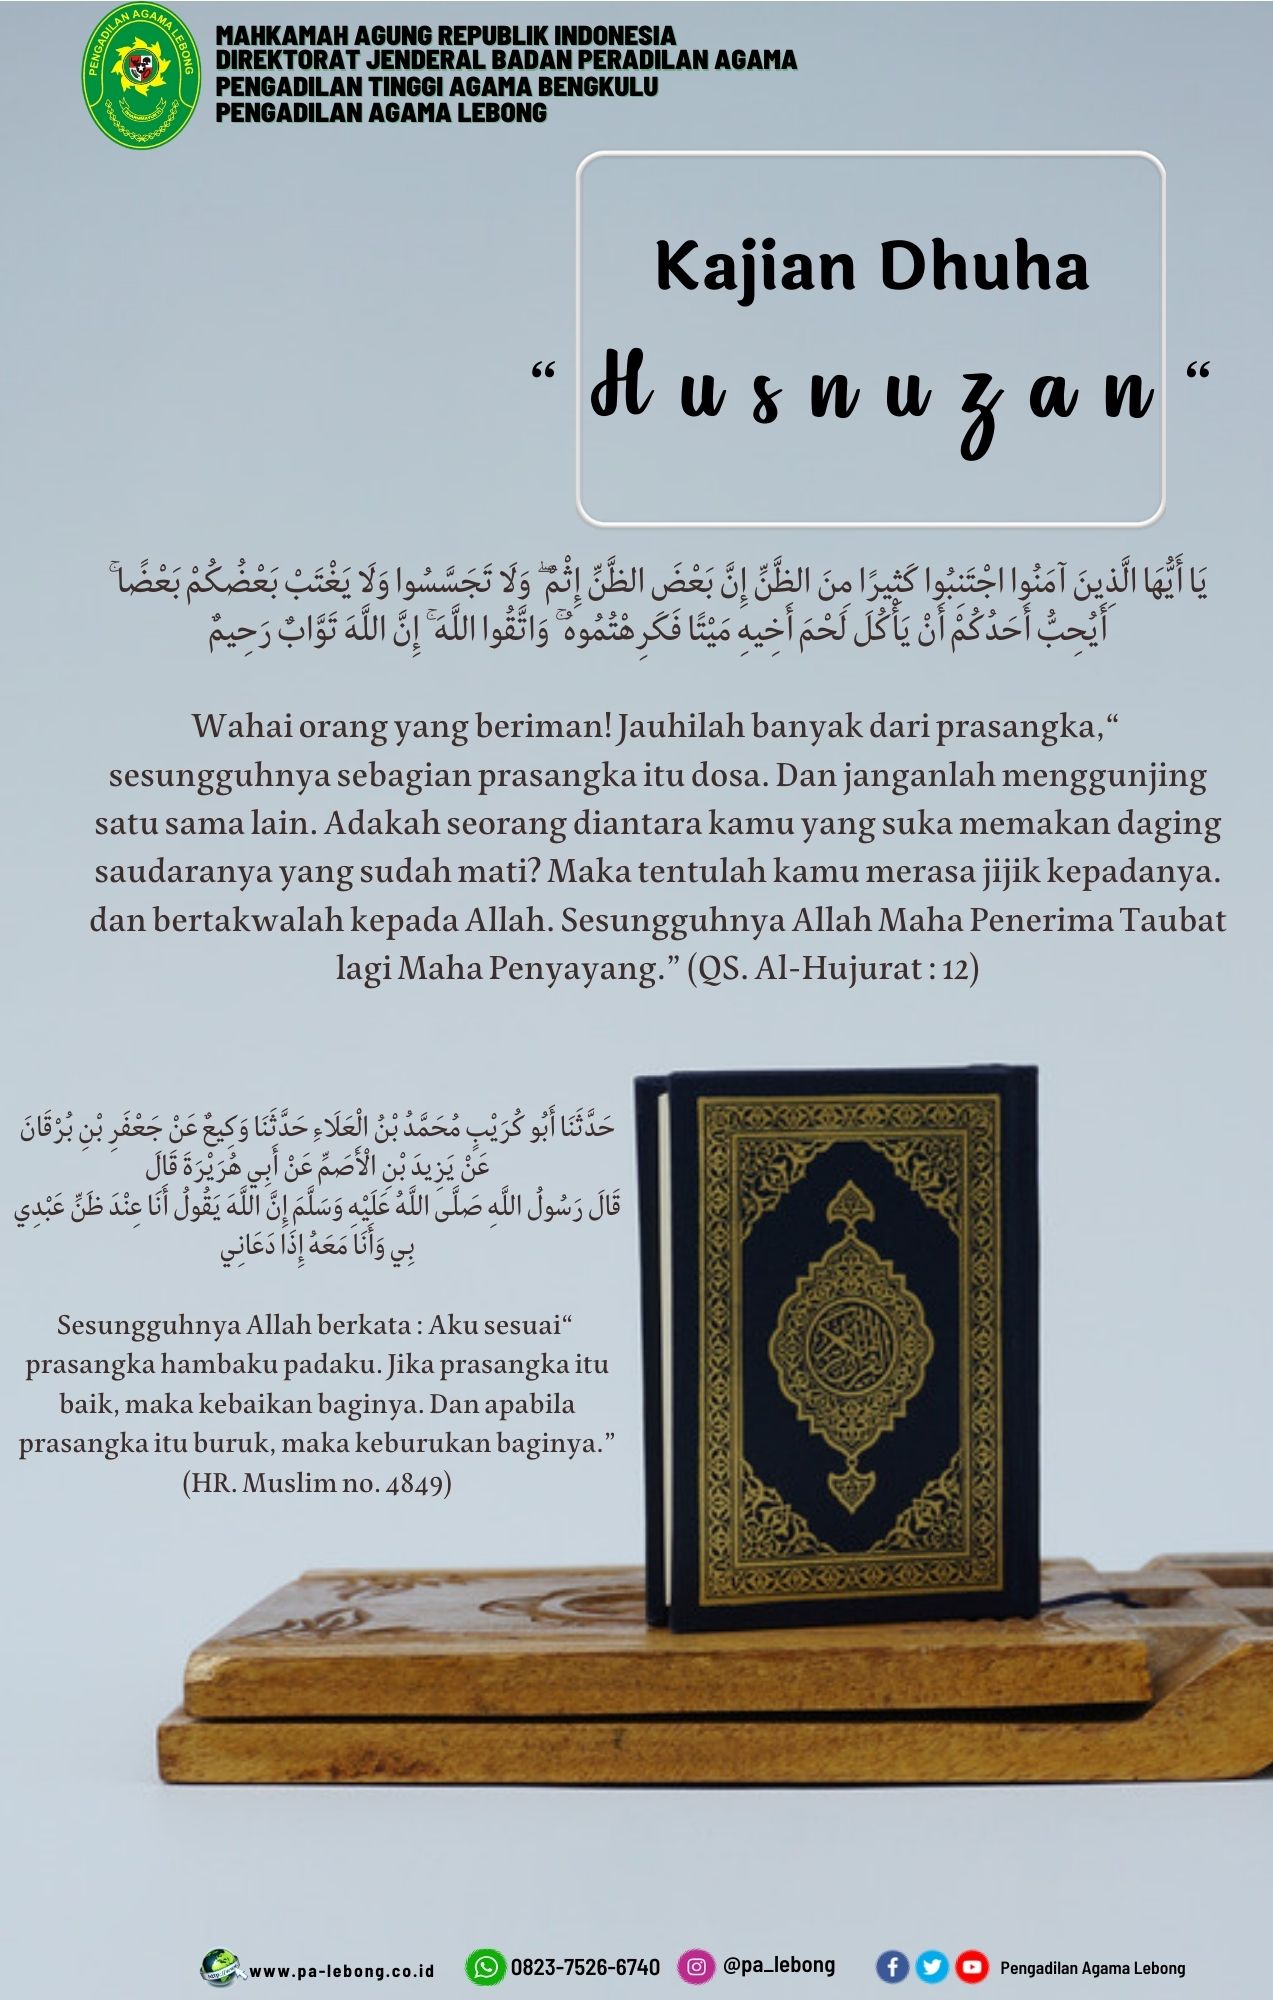 PENGADILAN AGAMA LEBONG
MAHKAMAH AGUNG REPUBLIK INDONESIA
DIREKTORAT JENDERAL BADAN PERADILAN AGAMA
PENGADILAN TINGGI AGAMA BENGKULU
PENGADILAN AGAMA LEBONG
Kajian Dhuha
“ Husnuzan “
يَا أَيُّهَا الَّذِينَ آمَنُوا اجْتَنِبُوا كَثِيرًا مِنَ الظَّنِّ إِنَّ بَعْضَ الظَّنِّ إِثْمٌ ۖ وَلَا تَجَسَّسُوا وَلَا يَغْتَبْ بَعْضُكُمْ بَعْضًا ۚ
أَيُحِبُّ أَحَدُكُمْ أَنْ يَأْكُلَ لَحْمَ أَخِيهِ مَيْتًا فَكَرِهْتُمُوهُ ۚ وَاتَّقُوا اللَّهَ ۚ إِنَّ اللَّهَ تَوَّابٌ رَحِيمٌ
Wahai orang yang beriman! Jauhilah banyak dari prasangka,“
sesungguhnya sebagian prasangka itu dosa. Dan janganlah menggunjing
satu sama lain. Adakah seorang diantara kamu yang suka memakan daging
saudaranya yang sudah mati? Maka tentulah kamu merasa jijik kepadanya.
dan bertakwalah kepada Allah. Sesungguhnya Allah Maha Penerima Taubat
lagi Maha Penyayang.” (QS. Al-Hujurat : 12)
حَدَّثَنَا أَبُو كُرَيْبٍ مُحَمَّدُ بْنُ الْعَلَاءِ حَدَّثَنَا وَكِيعٌ عَنْ جَعْفَرِ بْنِ بُرْقَانَ
عَنْ يَزِيدَ بْنِ الْأَصَمِّ عَنْ أَبِي هُرَيْرَةَ قَالَ
قَالَ رَسُولُ اللَّهِ صَلَّى اللَّهُ عَلَيْهِ وَسَلَّمَ إِنَّ اللَّهَ يَقُولُ أَنَا عِنْدَ ظَنِّ عَبْدِي
بِي وَأَنَا مَعَهُ إِذَا دَعَانِي
Sesungguhnya Allah berkata : Aku sesuai“
prasangka hambaku padaku. Jika prasangka itu
baik, maka kebaikan baginya. Dan apabila
prasangka itu buruk, maka keburukan baginya.”
(HR. Muslim no. 4849)
www.pa-lebong.co.id
0823-7526-6740
@pa_lebong
Pengadilan Agama Lebong